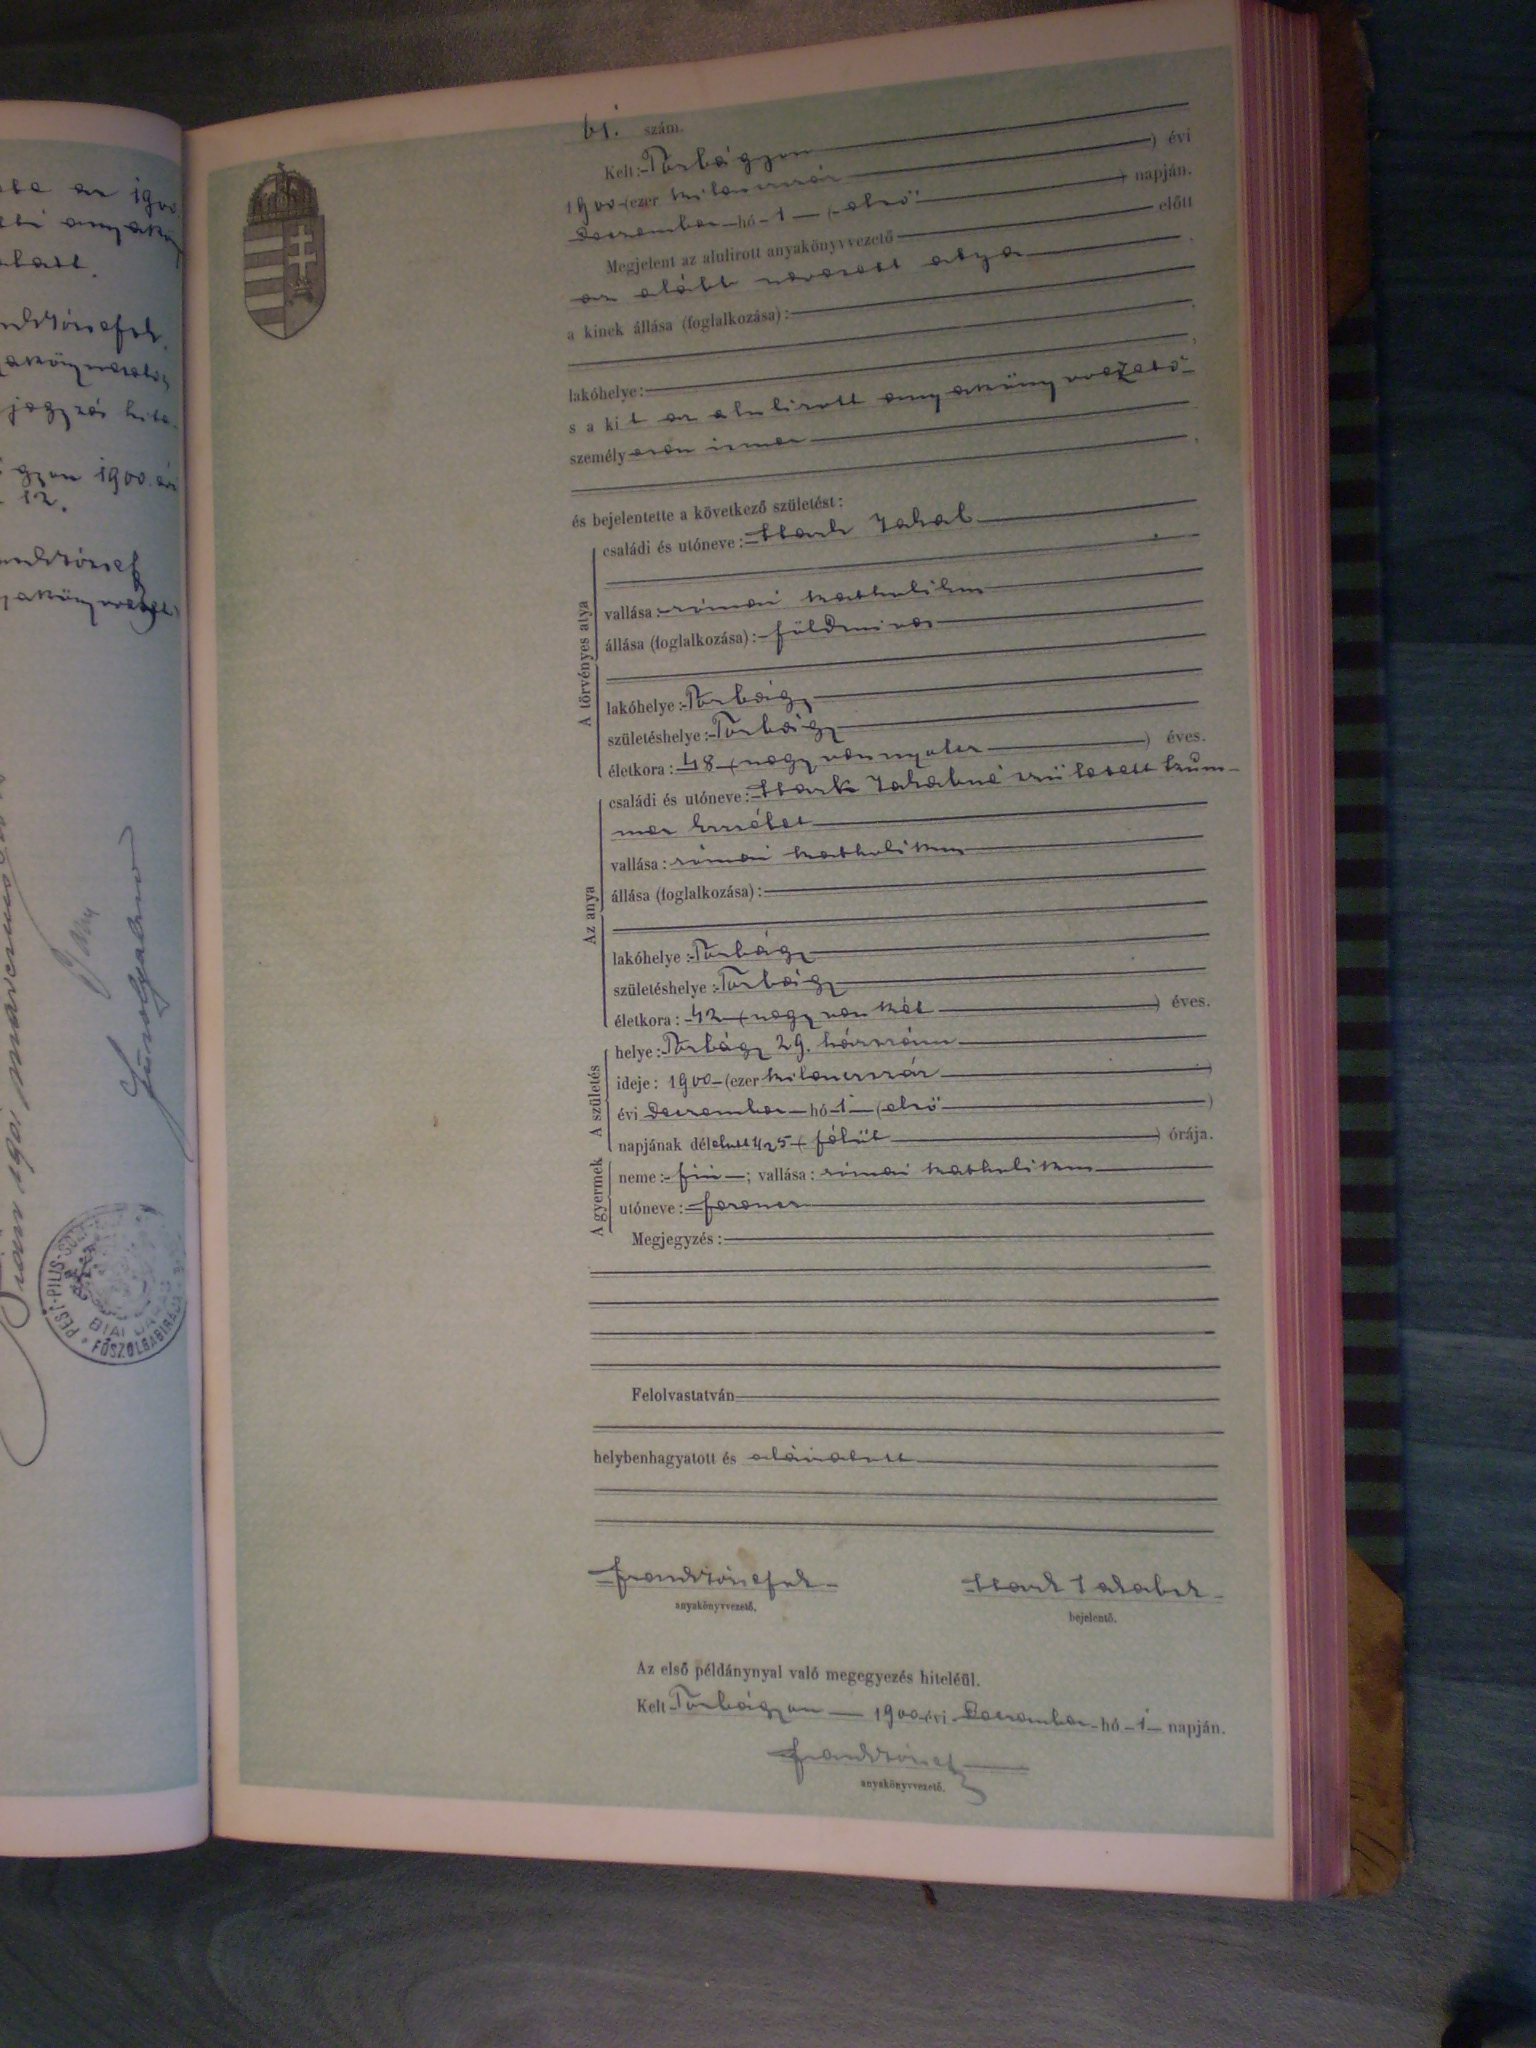 az 1900
jegyzői hite-
gyon 1900. évi
12.
1901
PEST-PILIS-
BIAI
FŐSZOLGABIRÁJA
61. szám.
Kelt: Torbágyon ) évi
1900 (ezer kilenczszáz
December hó 1 (első ) napján.
Megjelent az alulirott anyakönyvvezető előtt
az alább nevezett atya
a kinek állása (foglalkozása):
lakóhelye:
s a kit az alulirott anyakönyvvezető
személyesen ismer
és bejelentette a következő születést:
A törvényes atya
családi és utóneve: Stark Jakab
vallása: római katholikus
állása (foglalkozása): földmives
lakóhelye: Torbágy
születéshelye: Torbágy
életkora: 48 (negyvennyolcz ) éves.
Az anya
családi és utóneve: Stark Jakabné született Krum-
mer Erzsébet
vallása: római katholikus
állása (foglalkozása):
lakóhelye: Torbágy
születéshelye: Torbágy
életkora: 42 (negyvenkét ) éves.
A születés
helye: Torbágy 29. házszám
ideje: 1900 (ezer kilenczszáz )
évi December hó 1 (első )
napjának délelőtt ½5 (félöt ) órája.
A gyermek
neme: fiú ; vallása: római katholikus
utóneve: Ferencz
Megjegyzés:
Felolvastatván
helybenhagyatott és aláiratott
Frank József sk
Stark Jakab sk
anyakönyvvezető.
bejelentő.
Az első példánynyal való megegyezés hiteléül.
Kelt Torbágyon 1900 évi December hó 1 napján.
Frank József
anyakönyvvezető.